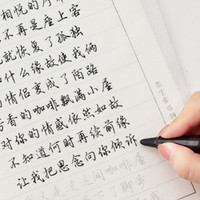 相悦的片
不再是座上客
就恢复了孤独
什么缘故使我俩
情侣变成了陌路
香的咖啡飘满小屋
对你的情感依然如故
不知道何时再续前缘
让我把思念向你倾诉